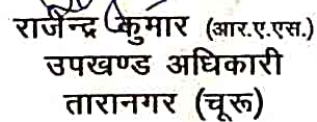 राजेन्द्र कुमार (आर.ए.एस.)
उपखण्ड अधिकारी
तारानगर (चूरू)